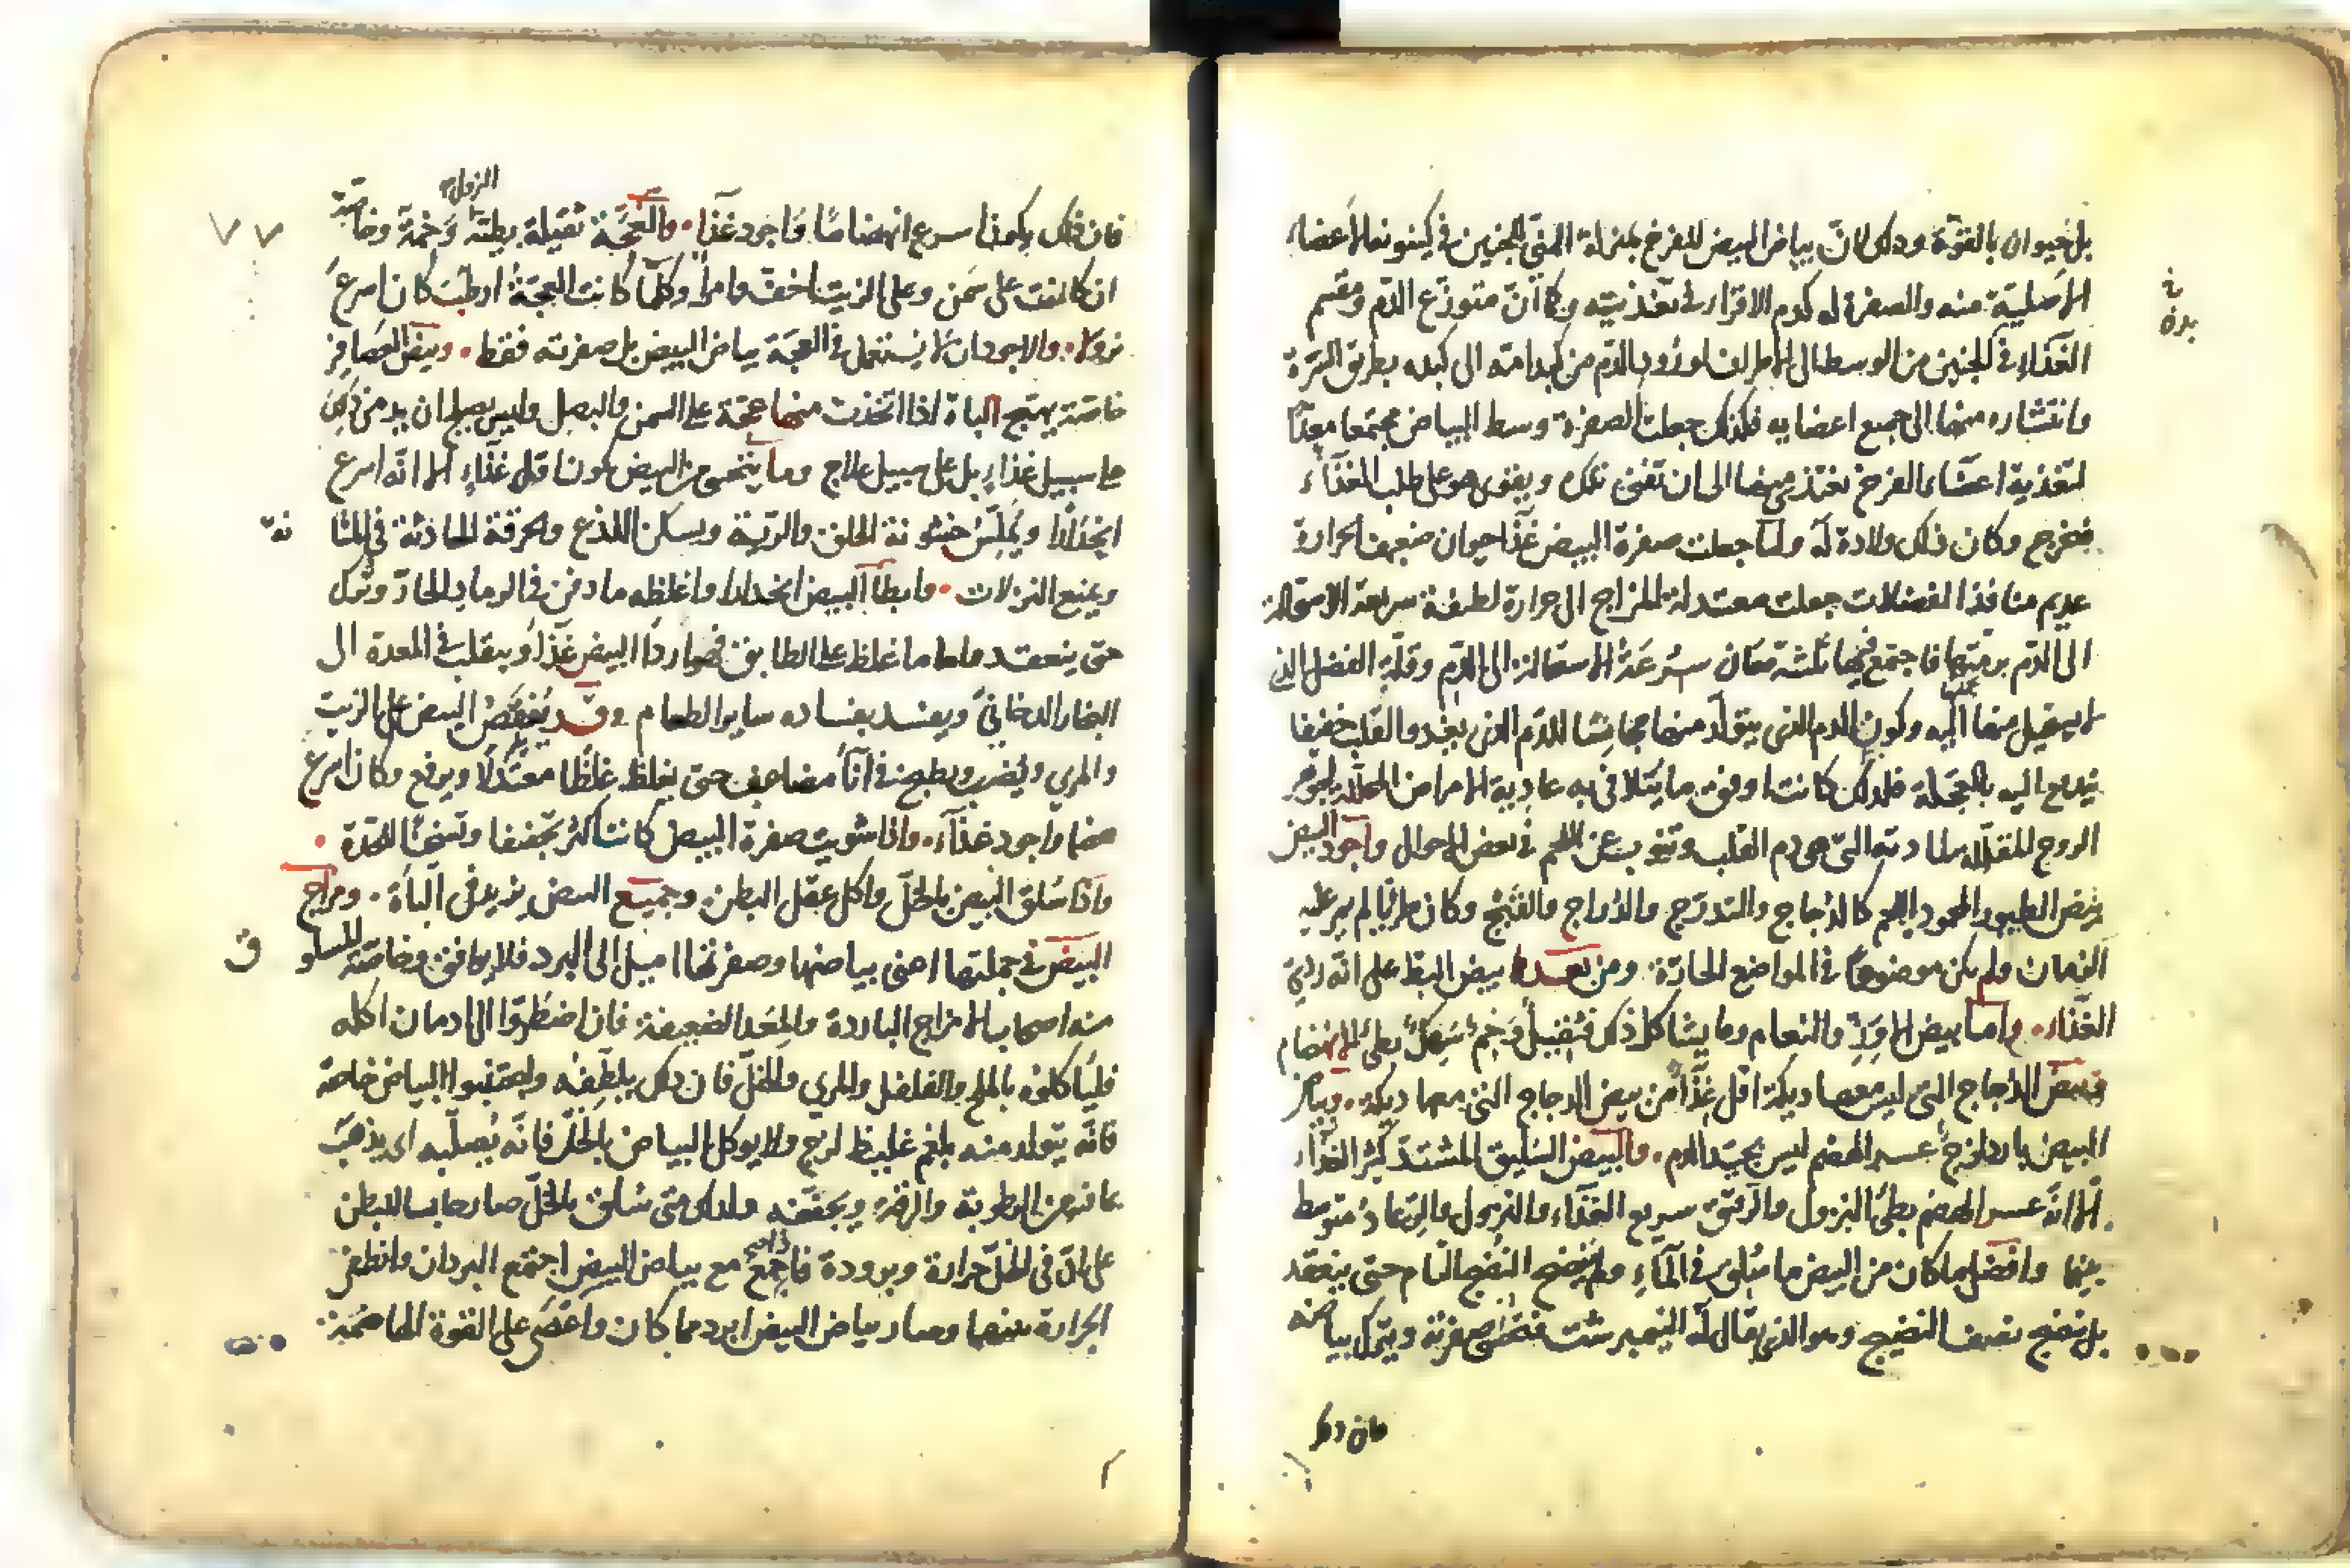 بل حيوان بالقوة وذلك لان بياض البيض للفرخ بمنزلة المني للجنين في كينونة الاعضاء
الاصلية منه والصفرة له كدم الاقراء في تغذيته وكما ان متوزع الدم ومقسم
الغذاء في الجنين من الوسط الى الاطراف لورود الدم من كبد امه الى كبده بطريق السرة
وانتشاره منها الى جميع اعضايه فكذلك جعلت الصفرة وسط البياض مجتمعا معدا
لتغذية اعضاء الفرخ يغتذي منها الى ان تفنى تلك ويقوى هو على طلب الغذاء
فيخرج وكان ذلك ولادة له ولما جعلت صفرة البيض غذا حيوان ضعيف الحرارة
عديم منافذ الفضلات جعلت معتدلة المزاج الى حرارة لطيفة سريعة الاستحالة
الى الدم برمتها فاجتمع فيها ثلثة معان سرعة الاستحالة الى الدم وقلة الفضل الذي
لا يستحيل منها اليه وكون الدم الذي يتولد منها مجانسا للدم الذي يغذو القلب خفيفا
يندفع اليه بالعجلة فلذلك كانت اوفق ما يتلافى به عادية الامراض المحللة لجوهر
الروح المقللة لمادته التي هي دم القلب وتنوب عن اللحم في بعض الاحوال واجود البيض
بيض الطيور المحمود اللحم كالدجاج والتدرج والدراج والقبج وكان طريا لم يمر عليه
الزمان ولم يكن موضوعا في المواضع الحارة ومن بعده بيض البط على انه ردي
الغذاء واما بيض الاوز والنعام وما يشاكل ذلك فثقيل وخم سهك بطي الانهضام
وبيض الدجاج التي ليس معها ديكة اقل غذا من بيض الدجاج التي معها ديكة وبياض
البيض بارد لزج عسر الهضم ليس بجيد الدم والبيض السليق المشتد كثير الغذاء
الا انه عسر الهضم بطي النزول والرقيق سريع الغذاء والنزول والرعاد متوسط
بينهما وافضل ما كان من البيض ما سلق في الماء ولم ينضج النضج التام حتى ينعقد
بل ينضج نصف النضج وهو الذي يقال له النيمبرشت فتحسى صفرته ويترك بياضه
فان ذلك
٧٧
فان ذلك يكون اسرع انهضاما واجود غذا والعجة ثقيلة بطيئة النزول وخمة وخاصة
ان كانت على سمن وعلى الزيت اخف وامرا وكلما كانت العجة ارطب كان اسرع
نزولا والاجود ان لا يستعمل في العجة بياض البيض بل صفرته فقط وبيض العصافير
خاصة يهيج الباة اذا اتخذت منها عجة على السمن والبصل وليس يصلح ان يدمن ذلك
على سبيل غذاء بل على سبيل علاج وما يتحسى من البيض يكون اقل غذاء الا انه اسرع
انحدارا ويملس خشونة الحلق والرية ويسكن اللذع والحرقة الحادثة في المثانة
ويمنع النزلات وابطا البيض انحدارا واغلظه ما دفن في الرماد الحار وترك
حتى ينعقد واما ما غلظ على الطابق فهو اردا البيض غذا وينقلب في المعدة الى
البخار الدخاني ويفسد بفساده ساير الطعام وقد يفقص البيض على الزيت
والمري ويضرب ويطبخ في اناء مضاعف حتى يغلظ غلظا معتدلا ويرفع وكان اسرع
هضما واجود غذاء واذا شويت صفرة البيض كانت اكثر تجفيفا وتسخينا للمعدة
واذا سلق البيض بالخل واكل عقل البطن وجميع البيض يزيد في الباة ومزاج
البيض في جملتها اعني بياضها وصفرتها اميل الى البرد فلا يوافق وخاصة المسلوق
منه اصحاب الامزاج الباردة والمعد الضعيفة فان اضطروا الى ادمان اكله
فلياكلوه بالملح والفلفل والمري والخل فان ذلك يلطفه وليجتنبوا البياض خاصة
فانه يتولد منه بلغم غليظ لزج ولا يوكل البياض بالخل فانه يصلبه اي يذهب
عنه الرطوبة والرقة ويجففه ولذلك متى سلق بالخل صار حابسا للبطن
على ان في الخل حرارة وبرودة فاذا جمع مع بياض البيض اجتمع البردان وانطفى
الحرارة بينهما وصار بياض البيض ابرد مما كان واعصى على القوة الهاضمة